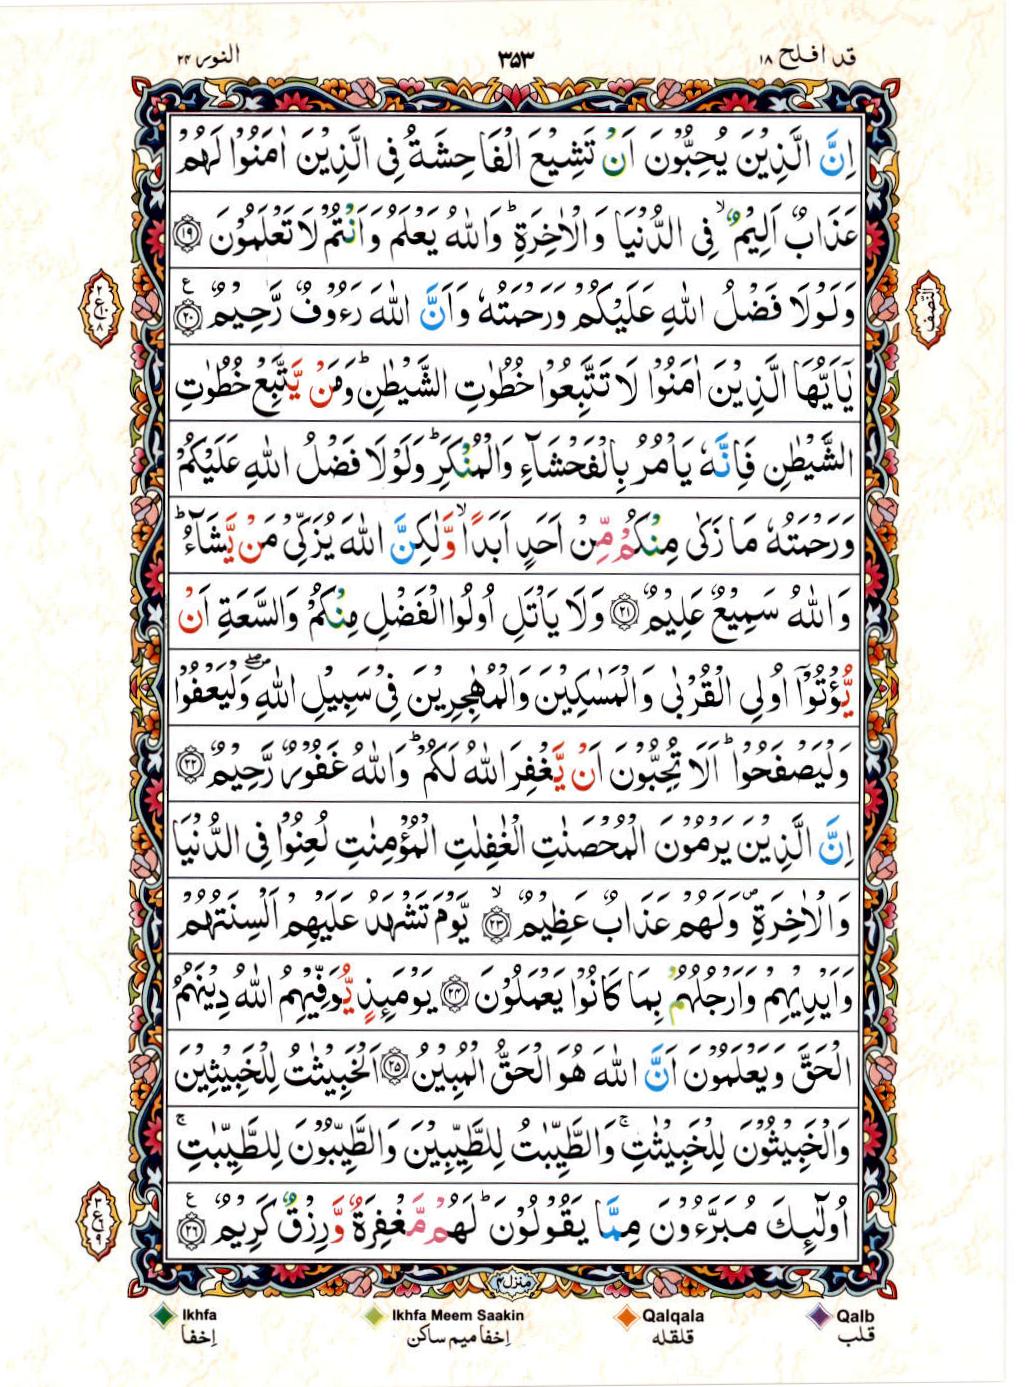 قد افلح ۱۸
۳۵۳
النور ۲۴
اِنَّ الَّذِيْنَ يُحِبُّوْنَ اَنْ تَشِيْعَ الْفَاحِشَةُ فِى الَّذِيْنَ اٰمَنُوْا لَهُمْ
عَذَابٌ اَلِيْمٌ ۙ فِى الدُّنْيَا وَالْاٰخِرَةِ ؕ وَاللّٰهُ يَعْلَمُ وَاَنْتُمْ لَا تَعْلَمُوْنَ ﴿۱۹﴾
وَلَوْلَا فَضْلُ اللّٰهِ عَلَيْكُمْ وَرَحْمَتُهٗ وَاَنَّ اللّٰهَ رَءُوْفٌ رَّحِيْمٌ ﴿۲۰﴾ ع
النصف
ع ۲ ۸
يٰۤاَيُّهَا الَّذِيْنَ اٰمَنُوْا لَا تَتَّبِعُوْا خُطُوٰتِ الشَّيْطٰنِ ؕ وَمَنْ يَّتَّبِعْ خُطُوٰتِ
الشَّيْطٰنِ فَاِنَّهٗ يَاْمُرُ بِالْفَحْشَآءِ وَالْمُنْكَرِ ؕ وَلَوْلَا فَضْلُ اللّٰهِ عَلَيْكُمْ
وَرَحْمَتُهٗ مَا زَكٰى مِنْكُمْ مِّنْ اَحَدٍ اَبَدًا ۙ وَّلٰكِنَّ اللّٰهَ يُزَكِّىْ مَنْ يَّشَآءُ ؕ
وَاللّٰهُ سَمِيْعٌ عَلِيْمٌ ﴿۲۱﴾ وَلَا يَاْتَلِ اُولُوا الْفَضْلِ مِنْكُمْ وَالسَّعَةِ اَنْ
يُّؤْتُوْۤا اُولِى الْقُرْبٰى وَالْمَسٰكِيْنَ وَالْمُهٰجِرِيْنَ فِىْ سَبِيْلِ اللّٰهِ ۖ وَلْيَعْفُوْا
وَلْيَصْفَحُوْا ؕ اَلَا تُحِبُّوْنَ اَنْ يَّغْفِرَ اللّٰهُ لَكُمْ ؕ وَاللّٰهُ غَفُوْرٌ رَّحِيْمٌ ﴿۲۲﴾
اِنَّ الَّذِيْنَ يَرْمُوْنَ الْمُحْصَنٰتِ الْغٰفِلٰتِ الْمُؤْمِنٰتِ لُعِنُوْا فِى الدُّنْيَا
وَالْاٰخِرَةِ ۪ وَلَهُمْ عَذَابٌ عَظِيْمٌ ۙ ﴿۲۳﴾ يَّوْمَ تَشْهَدُ عَلَيْهِمْ اَلْسِنَتُهُمْ
وَاَيْدِيْهِمْ وَاَرْجُلُهُمْ بِمَا كَانُوْا يَعْمَلُوْنَ ﴿۲۴﴾ يَوْمَئِذٍ يُّوَفِّيْهِمُ اللّٰهُ دِيْنَهُمُ
الْحَقَّ وَيَعْلَمُوْنَ اَنَّ اللّٰهَ هُوَ الْحَقُّ الْمُبِيْنُ ﴿۲۵﴾ اَلْخَبِيْثٰتُ لِلْخَبِيْثِيْنَ
وَالْخَبِيْثُوْنَ لِلْخَبِيْثٰتِ ۚ وَالطَّيِّبٰتُ لِلطَّيِّبِيْنَ وَالطَّيِّبُوْنَ لِلطَّيِّبٰتِ ۚ
اُولٰٓئِكَ مُبَرَّءُوْنَ مِمَّا يَقُوْلُوْنَ ؕ لَهُمْ مَّغْفِرَةٌ وَّرِزْقٌ كَرِيْمٌ ﴿۲۶﴾ ع
منزل۴
Ikhfa
Ikhfa Meem Saakin
Qalqala
Qalb
اِخفا
اِخفا میم ساکن
قلقله
قلب